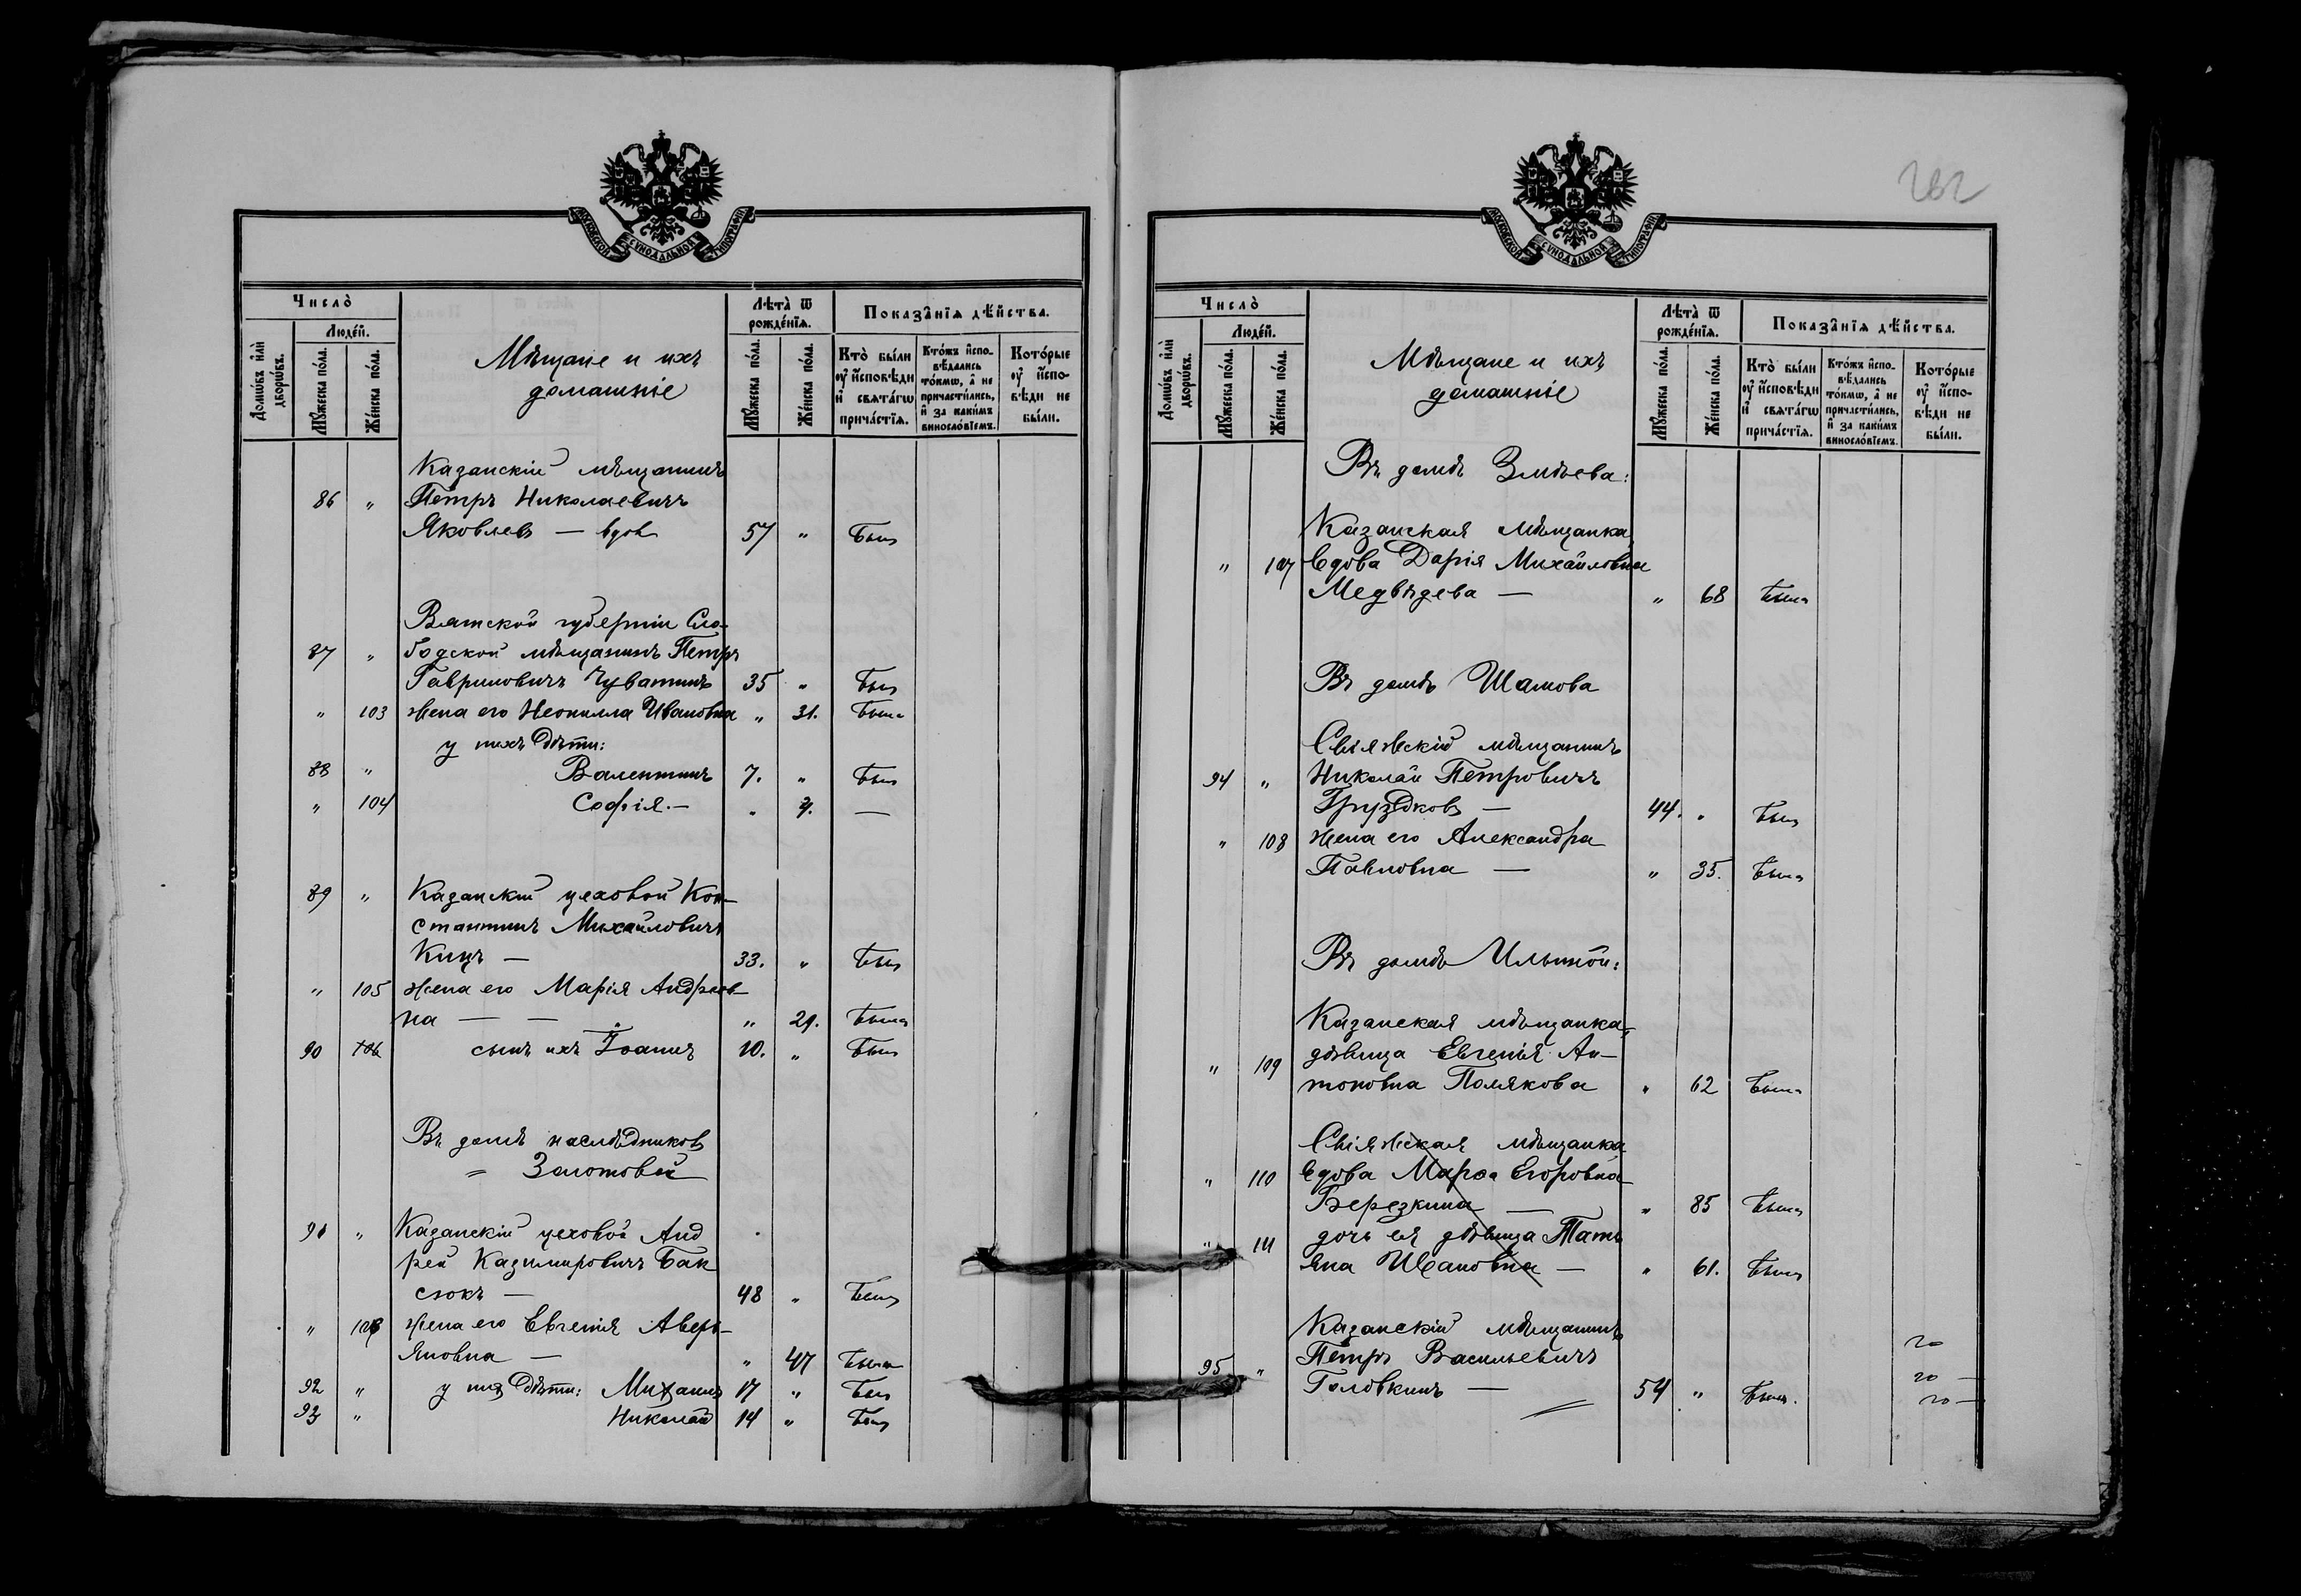 МОСКОВСКОЙ СѴНОДАЛЬНОЙ ТИПОГРАФІИ
Число̀
Людей.
Домѡвъ и҆лѝ дворѡвъ.
Мꙋжеска по́ла.
Же́нска по́ла.
Мѣщане и ихъ
домашніе
Лѣта̀ ѿ
рожде́нїѧ.
Мꙋжеска по́ла.
Же́нска по́ла.
Показа̂нїѧ дѣ́йства.
Кто̀ бы́ли
оу҆ и҆́сповѣди
и҆ свѧта́гѡ
прича́стїѧ.
Кто́жъ и҆спо-
вѣ́дались
то́кмѡ, а҆ не
причасти́лись,
и҆ за каки́мъ
виносло́вїемъ.
Кото́рые
оу҆ и҆́спо-
вѣди не
бы́ли.
Казанскій мѣщанинъ
86 " Петръ Николаевичъ
Яковлевъ — вдов 57 " Былъ
Вятской губерніи Сло-
87 " бодской мѣщанинъ Петръ
Гавриловичъ Чуватинъ 35 " Былъ
" 103 жена его Неонилла Ивановна " 31. Была
у нихъ дѣти:
88 " Валентинъ 7. " Былъ
" 104 Софія. — " —
89 " Казанскій цеховой Кон-
стантинъ Михайловичъ
Кицъ — 33. " Былъ
" 105 жена его Марія Андреев-
на — — " 29. Была
90 106 сынъ ихъ Іоаннъ 10. " Былъ
Въ домѣ наслѣдниковъ
= Золотовой
91 " Казанскій цеховой Анд
рей Казимировичъ Бак
сюкъ — 48 " Былъ
" жена его Евгенія Аверь-
яновна — " 47 Была
92 " у нихъ дѣти: Михаилъ 17 " Былъ
93 " Николай 14 " Былъ
262
МОСКОВСКОЙ СѴНОДАЛЬНОЙ ТИПОГРАФІИ
Число̀
Людей.
Домѡвъ и҆лѝ дворѡвъ.
Мꙋжеска по́ла.
Же́нска по́ла.
Мѣщане и ихъ
домашніе
Лѣта̀ ѿ
рожде́нїѧ.
Мꙋжеска по́ла.
Же́нска по́ла.
Показа̂нїѧ дѣ́йства.
Кто̀ бы́ли
оу҆ и҆́сповѣди
и҆ свѧта́гѡ
прича́стїѧ.
Кто́жъ и҆спо-
вѣ́дались
то́кмѡ, а҆ не
причасти́лись,
и҆ за каки́мъ
виносло́вїемъ.
Кото́рые
оу҆ и҆́спо-
вѣди не
бы́ли.
Въ домѣ Змѣева:
Казанская мѣщанка,
" 107 вдова Дарія Михайловна
Медвѣдева — " 68 Была
Въ домѣ Шамова
Свіяжскій мѣщанинъ
94 " Николай Петровичъ
Груздковъ — 44. " Былъ
" 108 жена его Александра
Павловна — " 35. Была
Въ домѣ Ильиной:
Казанская мѣщанка,
" 109 дѣвица Евгенія Ан-
тоновна Полякова " 62 Была
Свіяжская мѣщанка
" 110 вдова Марѳа Егоровна
Березкина — " 85 Была
" 111 дочь ея дѣвица Тать
яна Ивановна — " 61. Была
Казанскій мѣщанинъ
95 " Петръ Васильевичъ
Головкинъ — 54 " Былъ.
20
20 —
20 —